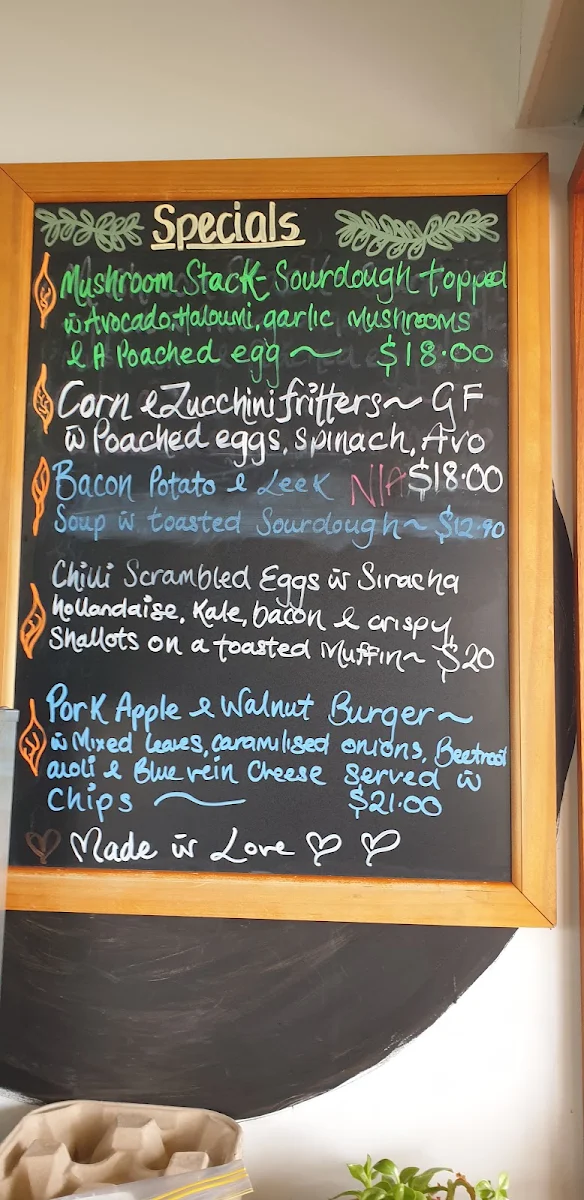 Specials
Mushroom Stack - Sourdough topped
w̄ Avocado, Haloumi, garlic Mushrooms
& A Poached egg ~ $18.00
Corn & Zucchini fritters ~ GF
w̄ Poached eggs, Spinach, Avo
$18.00
Bacon Potato & Leek N/A
Soup w̄ toasted Sourdough ~ $12.90
Chilli Scrambled Eggs w̄ Siracha
hollandaise, Kale, bacon & crispy
Shallots on a toasted Muffin ~ $20
Pork Apple & Walnut Burger ~
w̄ Mixed leaves, caramilised onions, Beetroot
aioli & Blue vein Cheese served w̄
Chips ~ $21.00
Made w̄ Love